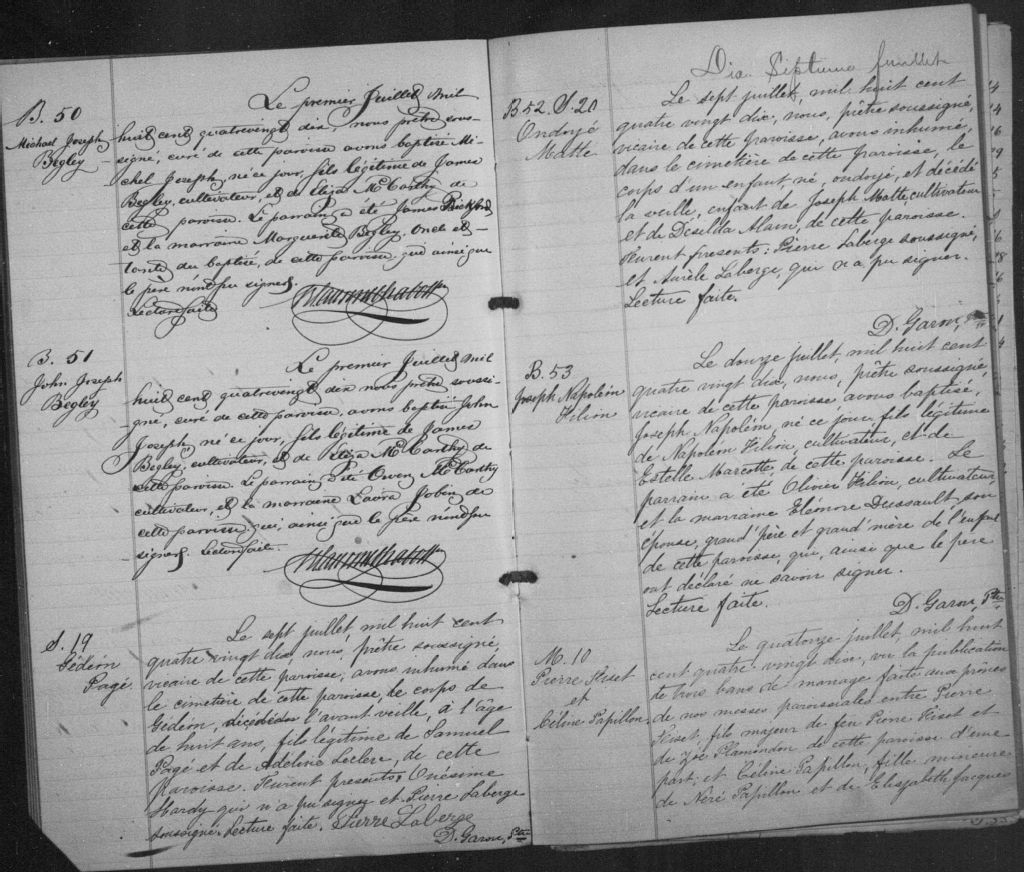 B. 50
Michael Joseph
Begley
Le premier Juillet mil
huit cent quatrevingt dix, nous prêtre sous-
signé, curé de cette paroisse avons baptisé Mi-
chel Joseph, né ce jour, fils légitime de James
Begley, cultivateur, et de Eliza McCarthy de
cette paroisse. Le parrain a été James
et la marraine Marguerite Begley, Oncle et
tante du baptisé, de cette paroisse qui ainsi que
le père n'ont pu signer.
Lecture faite
B. 51
John Joseph
Begley
Le premier Juillet mil
huit cent quatrevingt dix nous prêtre soussi-
gné, curé de cette paroisse, avons baptisé John
Joseph né ce jour, fils légitime de James
Begley, cultivateur, et de Eliza McCarthy de
cette paroisse. Le parrain a été Owen McCarthy
cultivateur, et la marraine Laura Jobin de
cette paroisse qui, ainsi que le père n'ont pu
signer. Lecture faite.
S. 19
Gédéon
Pagé
Le sept juillet, mil huit cent
quatre vingt dix, nous, prêtre soussigné,
vicaire de cette paroisse, avons inhumé dans
le cimetière de cette paroisse, le corps de
Gédéon, décédé l'avant veille, à l'âge
de huit ans, fils légitime de Samuel
Pagé et de Adeline Leclerc, de cette
paroisse. Furent presents: Onésime
Hardy qui n'a pu signer et Pierre Laberge
soussigné. Lecture faite. Pierre Laberge
D. Garon, Ptre
Die Septima Juillet
B. 52. S. 20
Ondoyé
Matte
Le sept juillet, mil huit cent
quatre vingt dix, nous, prêtre soussigné,
vicaire de cette paroisse, avons inhumé,
dans le cimetière de cette paroisse, le
corps d'un enfant, né, ondoyé, et décédé
la veille, enfant de Joseph Matte, cultivateur
et de Déselda Alain, de cette paroisse.
Furent presents: Pierre Laberge soussigné,
et Aurèle Laberge, qui n'a pu signer.
Lecture faite.
D. Garon, Ptre
B. 53
Joseph Napoléon
Filion
Le douze juillet, mil huit cent
quatre vingt dix, nous, prêtre soussigné,
vicaire de cette paroisse avons baptisé,
Joseph Napoléon, né ce jour, fils légitime
de Napoléon Filion, cultivateur, et de
Estelle Marcotte, de cette paroisse. Le
parrain a été Olivier Filion, cultivateur,
et la marraine Eléonore Dussault son
épouse, grand'père et grand'mère de l'enfant
de cette paroisse, qui, ainsi que le père
ont déclaré ne savoir signer.
Lecture faite.
D. Garon, Ptre
M. 10
Pierre Fiset
et
Céline Papillon
Le quatorze juillet, mil huit
cent quatre vingt dix, vu la publication
de trois bans de mariage faite aux prônes
de nos messes paroissiales entre Pierre
Fiset, fils majeur de feu Pierre Fiset et
de Zoé Plamondon de cette paroisse d'une
part, et Céline Papillon, fille mineure
de Néré Papillon et de Elisabeth Jacques